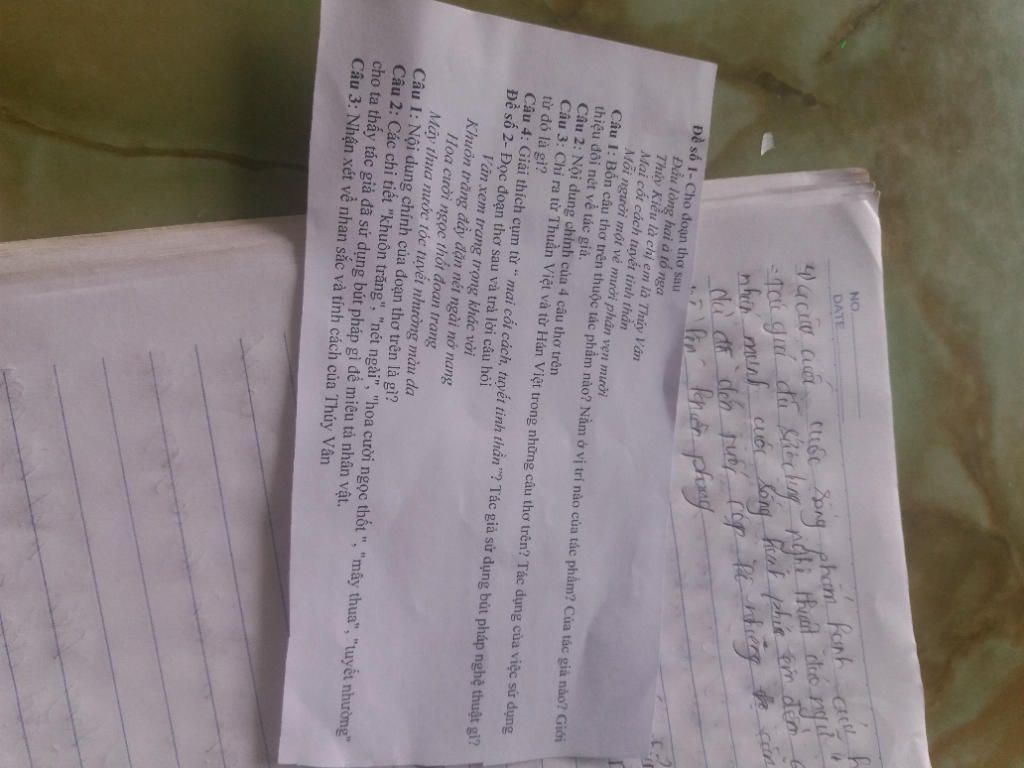 Đề số 1- Cho đoạn thơ sau
Đầu lòng hai ả tố nga
Thúy Kiều là chị em là Thúy Vân
Mai cốt cách tuyết tinh thần
Mỗi người một vẻ mười phân vẹn mười
Câu 1: Bốn câu thơ trên thuộc tác phẩm nào? Nằm ở vị trí nào của tác phẩm? Của tác giả nào? Giới
thiệu đôi nét về tác giả.
Câu 2: Nội dung chính của 4 câu thơ trên
Câu 3: Chỉ ra từ Thuần Việt và từ Hán Việt trong những câu thơ trên? Tác dụng của việc sử dụng
từ đó là gì?
Câu 4: Giải thích cụm từ " mai cốt cách, tuyết tinh thần"? Tác giả sử dụng bút pháp nghệ thuật gì?
Đề số 2- Đọc đoạn thơ sau và trả lời câu hỏi
Vân xem trang trọng khác vời
Khuôn trăng đầy đặn nét ngài nở nang
Hoa cười ngọc thốt đoan trang
Mây thua nước tóc tuyết nhường màu da
Câu 1: Nội dung chính của đoạn thơ trên là gì?
Câu 2: Các chi tiết "khuôn trăng", "nét ngài", "hoa cười ngọc thốt", "mây thua", "tuyết nhường"
cho ta thấy tác giả đã sử dụng bút pháp gì để miêu tả nhân vật.
Câu 3: Nhận xét về nhan sắc và tính cách của Thúy Vân
NO.
DATE
của cuối cuộc sống
- Tác giả đã sử dụng nghệ thuật
nhấn mạnh cuộc sống hạnh phúc